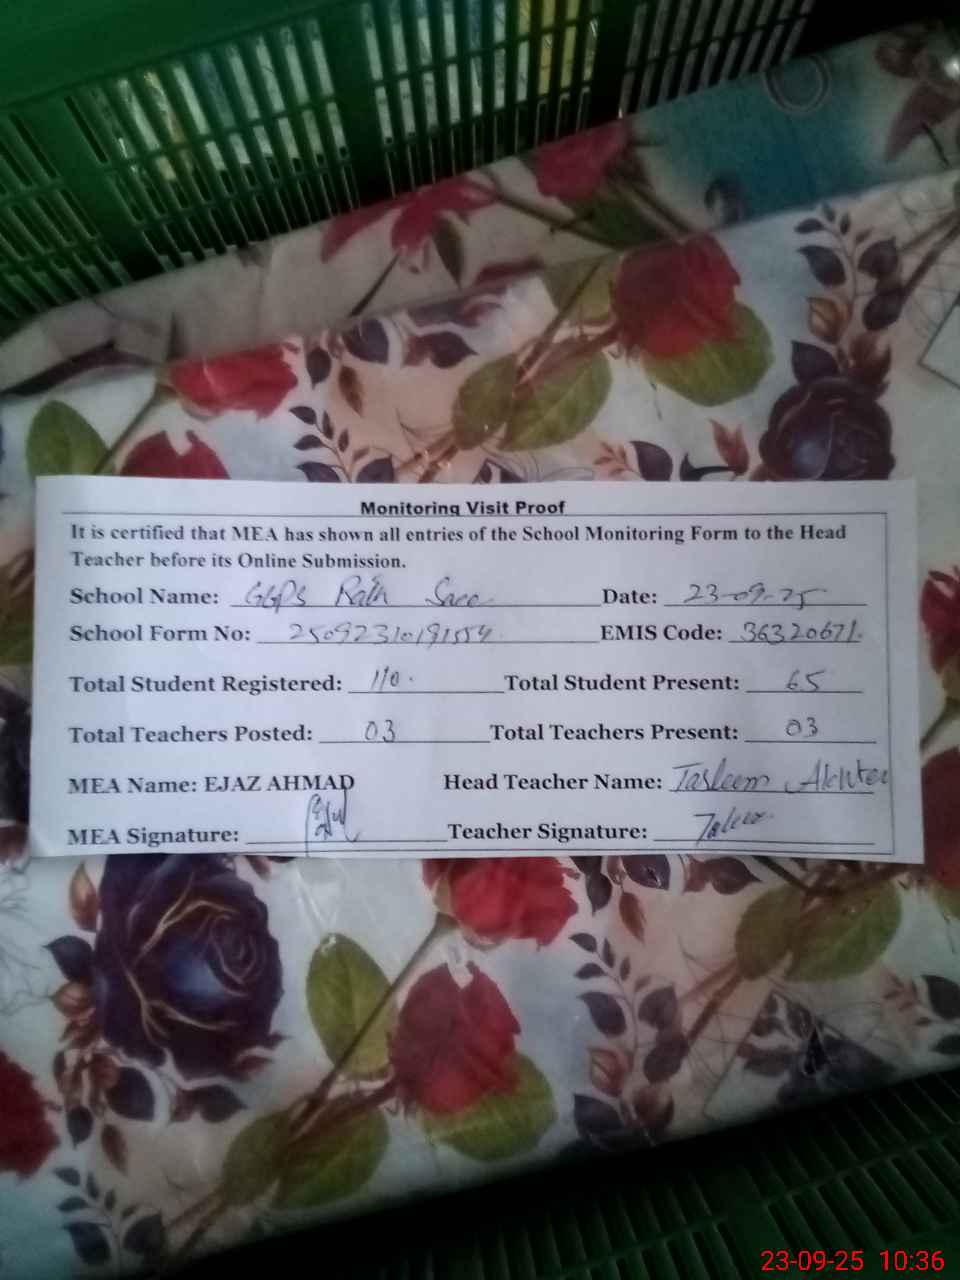 Monitoring Visit Proof
It is certified that MEA has shown all entries of the School Monitoring Form to the Head
Teacher before its Online Submission.
School Name: GGPS Date: 23-09-25
School Form No: EMIS Code: 36320671
Total Student Registered: 110 Total Student Present: 65
Total Teachers Posted: 03 Total Teachers Present: 03
MEA Name: EJAZ AHMAD Head Teacher Name: Tasleem Akhter
MEA Signature: Teacher Signature:
23-09-25 10:36